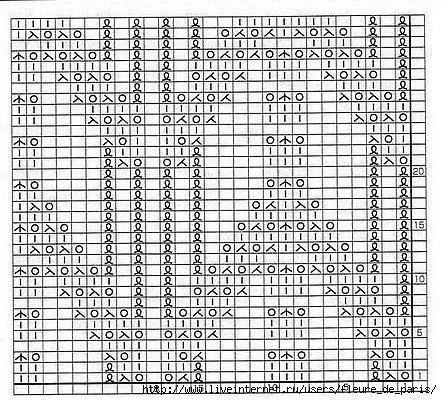 20
15
10
5
1
http://www.liveinternet.ru/users/fleure_de_paris/